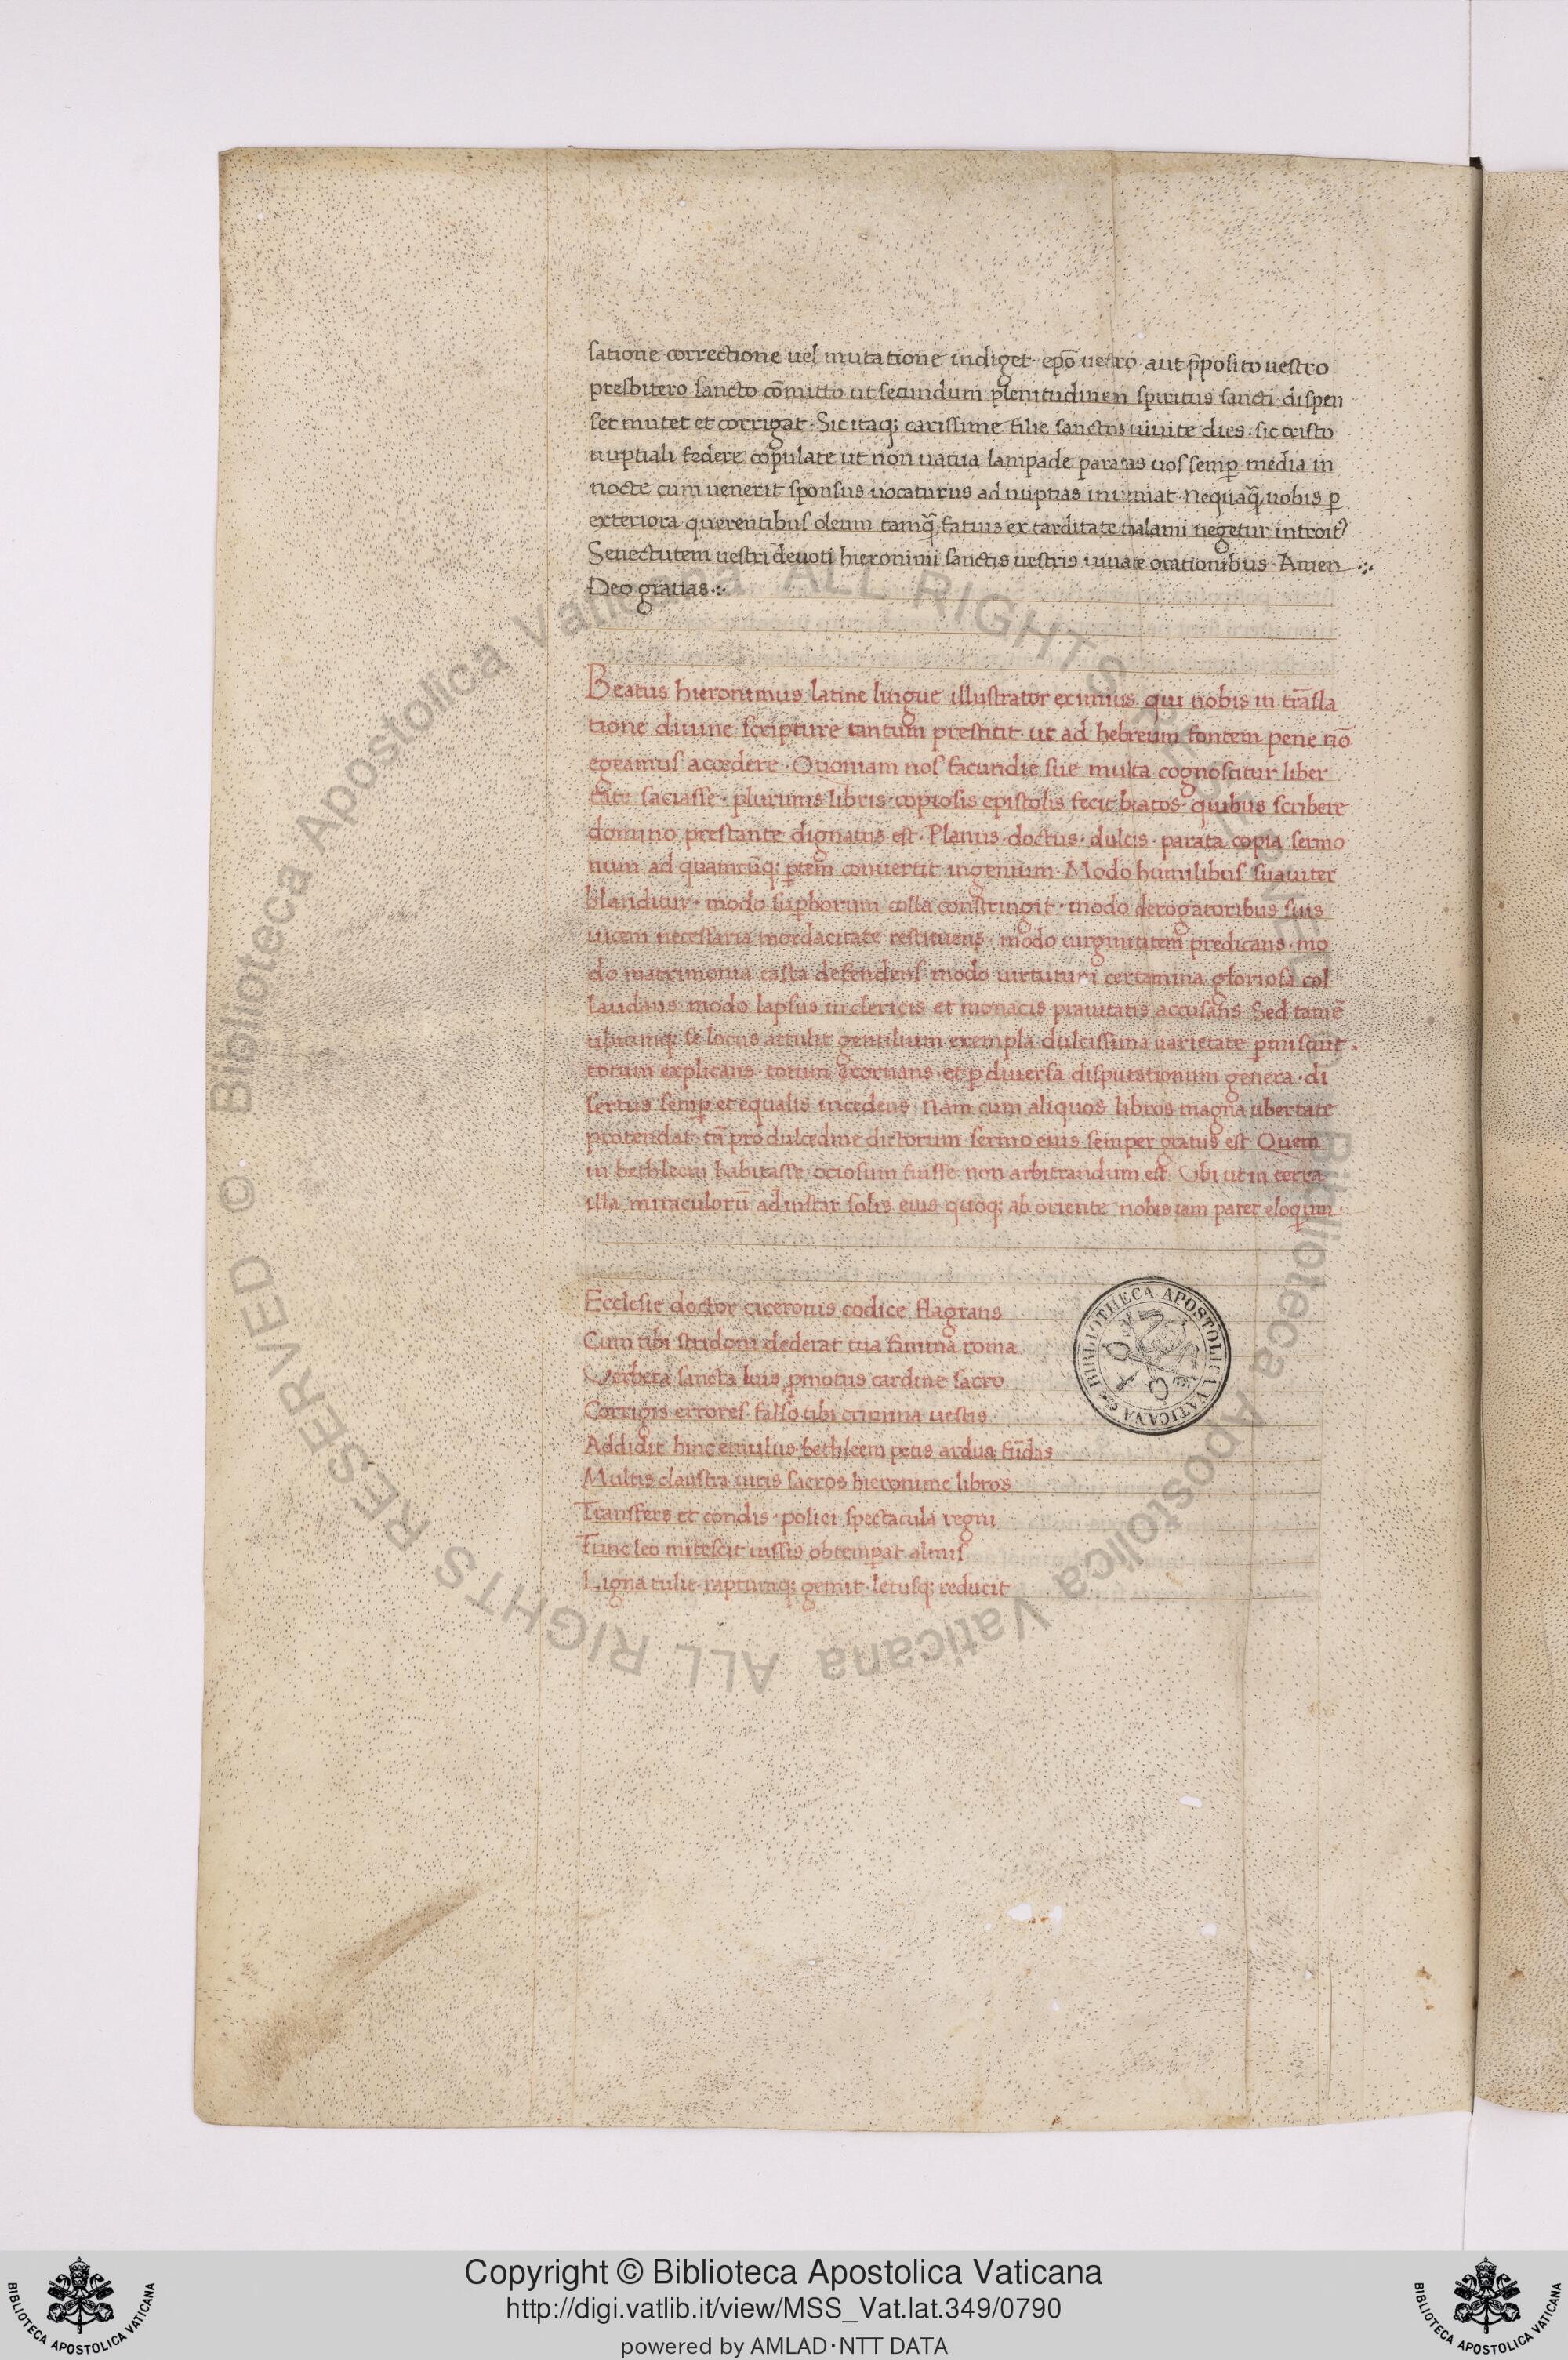 satione correctione uel mutatione indiget· ep̄o uestro aut p̄posito uestro
presbitero sancto cōmitto ut secundum plenitudinem spiritus sancti dispen
set mutet et corrigat· Sic itaq; carissime filie sanctos uiuite dies· sic cristo
nuptiali federe copulate ut non uacua lampade paratas uos semp̄ media in
nocte cum uenerit sponsus uocaturus ad nuptias inueniat· Nequaq̄ uobis p̄
exteriora querentibus oleum tamq̄ fatuis ex tarditate talami negetur introit᾿
Senectutem uestri deuoti hieronimi sanctis uestris iuuate orationibus· Amen
Deo gratias
Beatus hieronimus latine lingue illustrator eximius qui nobis in trāsla
tione diuine scripture tantum prestitit· ut ad hebreum fontem pene nō
egeamus accedere· Quoniam nos facundie sue multa cognoscitur liber
tate saciasse· plurimis libris· copiosis epistolis fecit beatos· quibus scribere
domino prestante dignatus est· Planus· doctus· dulcis· parata copia sermo
num ad quamcūq; p̄tem conuertit ingenium· Modo humilibus suauiter
blanditur· modo sup̄borum colla constringit· modo derogatoribus suis
uicem necessaria mordacitate restituens· modo uirginitatem predicans· mo
do matrimonia casta defendens modo uirtutum certamina gloriosa col
laudans· modo lapsus in clericis et monacis prauitatis accusans· Sed tamē
ubicumq; se locus attulit gentilium exempla dulcissima uarietate p̄miscuit·
totum explicans· totum exornans· et p̄ diuersa disputationum genera· di
sertus semp̄ et equalis incedens· Nam cum aliquos libros magna ubertate
protendat· tā pro dulcedine dictorum sermo eius semper gratus est Quem
in bethleem habitasse ociosum fuisse non arbitrandum est· Ubi ut in terra
illa miraculorū ad instar solis eius quoq; ab oriente nobis iam paret eloquium·
Ecclesie doctor ciceronis codice flagrans
Cum tibi stridoni dederat tua famina roma
Uerbera sancta luis p̄motus cardine sacro
Corrigis errores· falso tibi crimina uestis
Addidit hinc emulus· bethleem petis ardua fūdas
Multis claustra uiris sacros hieronime libros
Transfers et condis· polici spectacula regni
Tunc leo mitescit iussis obtemperat almis
Ligna tulit· raptumq; gemit· letusq; reducit
BIBLIOTHECA APOSTOLICA VATICANA
© Biblioteca Apostolica Vaticana ALL RIGHTS RESERVED
© Biblioteca Apostolica Vaticana ALL RIGHTS RESERVED
Copyright © Biblioteca Apostolica Vaticana
http://digi.vatlib.it/view/MSS_Vat.lat.349/0790
powered by AMLAD·NTT DATA
BIBLIOTECA APOSTOLICA VATICANA
BIBLIOTECA APOSTOLICA VATICANA